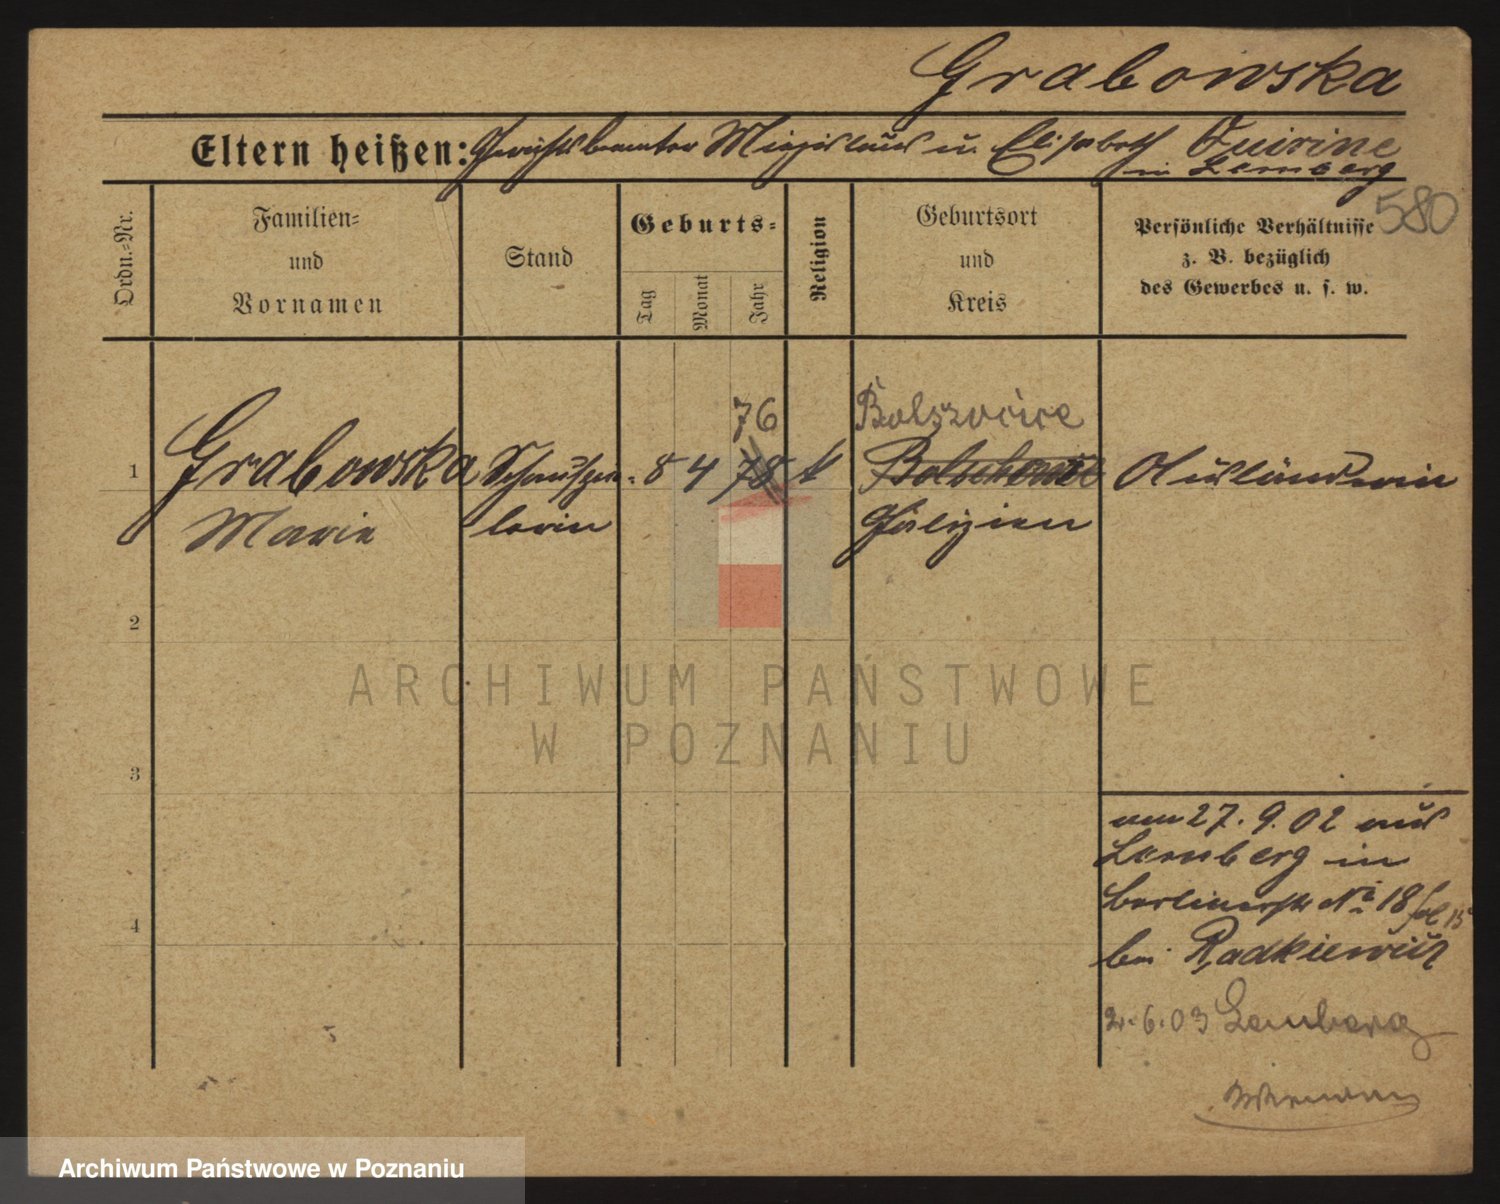 Grabowska
Eltern heißen: Gerichtsbeamter Miezislaus u. Elisabeth Quirine
in Lemberg
580
Ordn.-Nr.
Familien-
und
Vornamen
Stand
Geburts-
Tag
Monat
Jahr
Religion
Geburtsort
und
Kreis
Persönliche Verhältnisse
z. B. bezüglich
des Gewerbes u. s. w.
76 Bolszowice
1 Grabowska Schauspie- 8 4 78 k Ausländerin
Marie lerin Galizien
2
ARCHIWUM PAŃSTWOWE
W POZNANIU
3
am 27. 9. 02 aus
Lemberg in
Berlinerstr No 18 fol 15
bei Radkiewicz
4
2.6.03 Lemberg
Archiwum Państwowe w Poznaniu